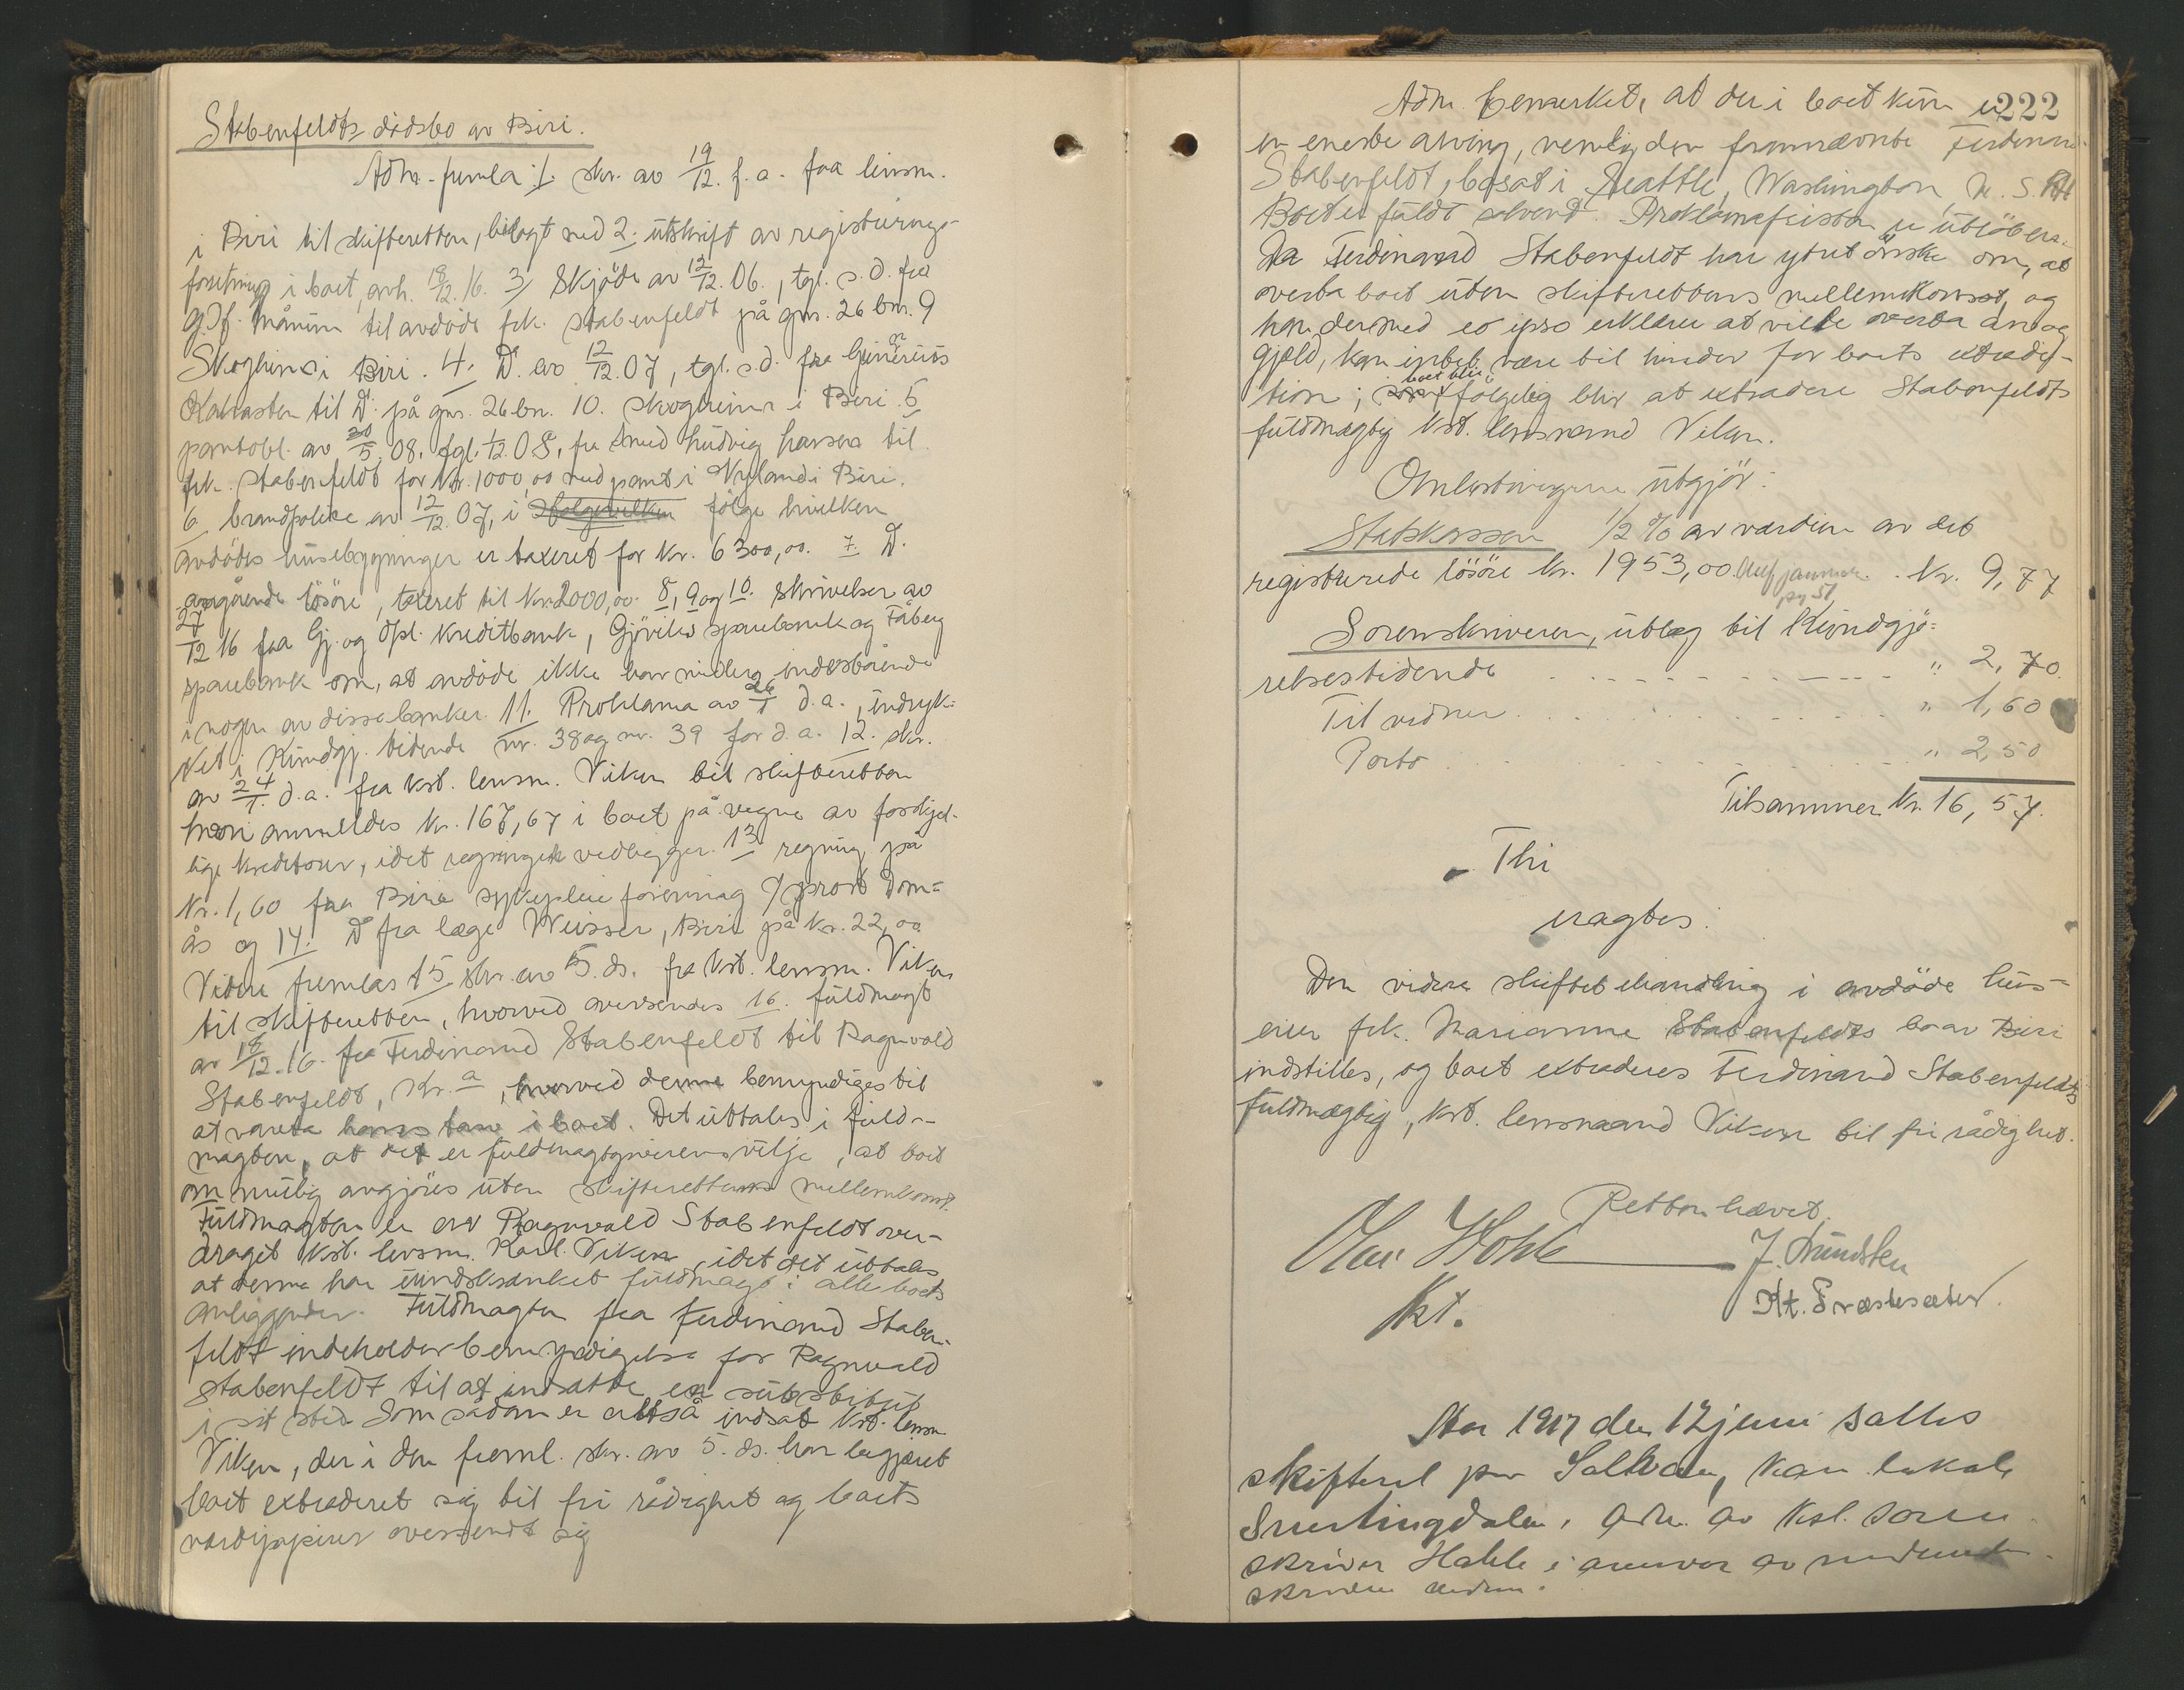 Stabenfeldts dødsbo av Biri.
Adm. fremla: 1. skr. av 19/12. f. a. fra lensm.
i Biri til skifteretten, bilagt med 2. utskrift av registrerings-
forretning i boet, avh. 18/12. 16. 3, Skjøde av 12/12. 06., tgl. s. d. fra
til avdøde frk. Stabenfeldt på gnr. 26 bnr. 9
Skogheim i Biri. 4. D. av 12/12. 07, tgl. s. d. fra
til D. på gnr. 26 bn. 10. Skogheim i Biri. 5
pantobl. av 30/5. 08, tgl. 1/12. 08, fra smed Ludvig Hansen til
frk. Stabenfeldt for Kr. 1000,00 med pant i Nyland i Biri.
6. brandpolice av 12/12. 07, i følge hvilken
avdødes husebygninger er taxeret for Kr. 6300,00. 7. D.
angående løsøre, taxeret til Kr. 2000,00. 8, 9 og 10. skrivelser av
27/12 16 fra Gj. og Opl. Kreditbank, Gjøviks sparebank og Fåberg
sparebank om, at avdøde ikke har midler indestående
i nogen av disse banker. 11. Proklama av 26/1 d. a., indryk-
ket i Kundgj. tidende nr. 38 og nr. 39 for d. a. 12. skr.
av 24/1. d. a. fra kst. lensm. Viken til skifteretten
hvori anmeldes Kr. 167,67 i boet på vegne av forskjel-
lige kreditorer, idet regninger vedlegges. 13 regning på
Kr. 1,60 fra Biri sykepleieforening v/ prost Dom-
ås og 14. D fra læge Weisser, Biri på Kr. 22,00
Videre fremlas 15 skr. av 5. ds. fra kst. lensm. Viken
til skifteretten, hvorved oversendes 16. fuldmagt
av 18/12. 16. fra Ferdinand Stabenfeldt til Ragnvald
Stabenfeldt, Kr.a, hvorved denne bemyndiges til
at vareta hans tarv i boet. Det uttales i fuld-
magten, at det er fuldmagtsgiverens vilje, at boet
om mulig avgjøres uten skifterettens mellemkomst.
Fuldmagten er av Ragnvald Stabenfeldt over-
draget kst. lensm. Karl Viken, idet det uttales
at denne har uindskrænket fuldmagt i alle boets
anliggender. Fuldmagten fra Ferdinand Staben-
feldt indeholder bemyndigelse for Ragnvald
Stabenfeldt til at indsætte en substitut
i sit sted. Som sådan er altså indsat kst. lensm.
Viken, der i den freml. skr. av 5. ds. har begjæret
boet extraderet sig til fri rådighet og boets
værdipapirer oversendt sig
222
Adm. bemerket, at der i boet kun er
en eneste arving, nemlig den fornævnte Ferdinand
Stabenfeldt, bosat i Seattle, Washington, U. S. A.
Boet er fuldt solvent. Proklamafristen er utløben.
Da Ferdinand Stabenfeldt har ytret ønske om, at
overta boet uten skifterettens mellemkomst, og
han dermed eo ipso erklærer at ville overta arv og
gjæld, kan intet være til hinder for boets extradi-
tion; boet blir følgelig blir at extradere Stabenfeldts
fuldmægtig kst. lensmand Viken.
Omkostningerne utgjør:
Statskassen 1/2 % av værdien av det
registrerede løsøre Kr. 1953,00 . Kr. 9,77
Sorenskriveren, utlæg til Kundgjø-
relsestidende . . . . . . . . . " 2,70
Til vidner . . . . . . . . . " 1,60
Porto . . . . . . . . . " 2,50
Tilsammen Kr. 16,57.
Thi
eragtes:
Den videre skiftebehandling i avdøde hus-
eier frk. Marianne Stabenfeldts bo av Biri
indstilles, og boet extraderes Ferdinand Stabenfeldts
fuldmægtig, kst. lensmand Viken til fri rådighet.
Retten hævet.
Olav Hohle J. Sundsten
Kst. Kr. Præstesæter.
Aar 1917 den 12 juni sattes
skifteret paa Solbakken, kom. lokale
Snertingdalen, Adm. av Kst. soren
skriver Hohle i nærvær av